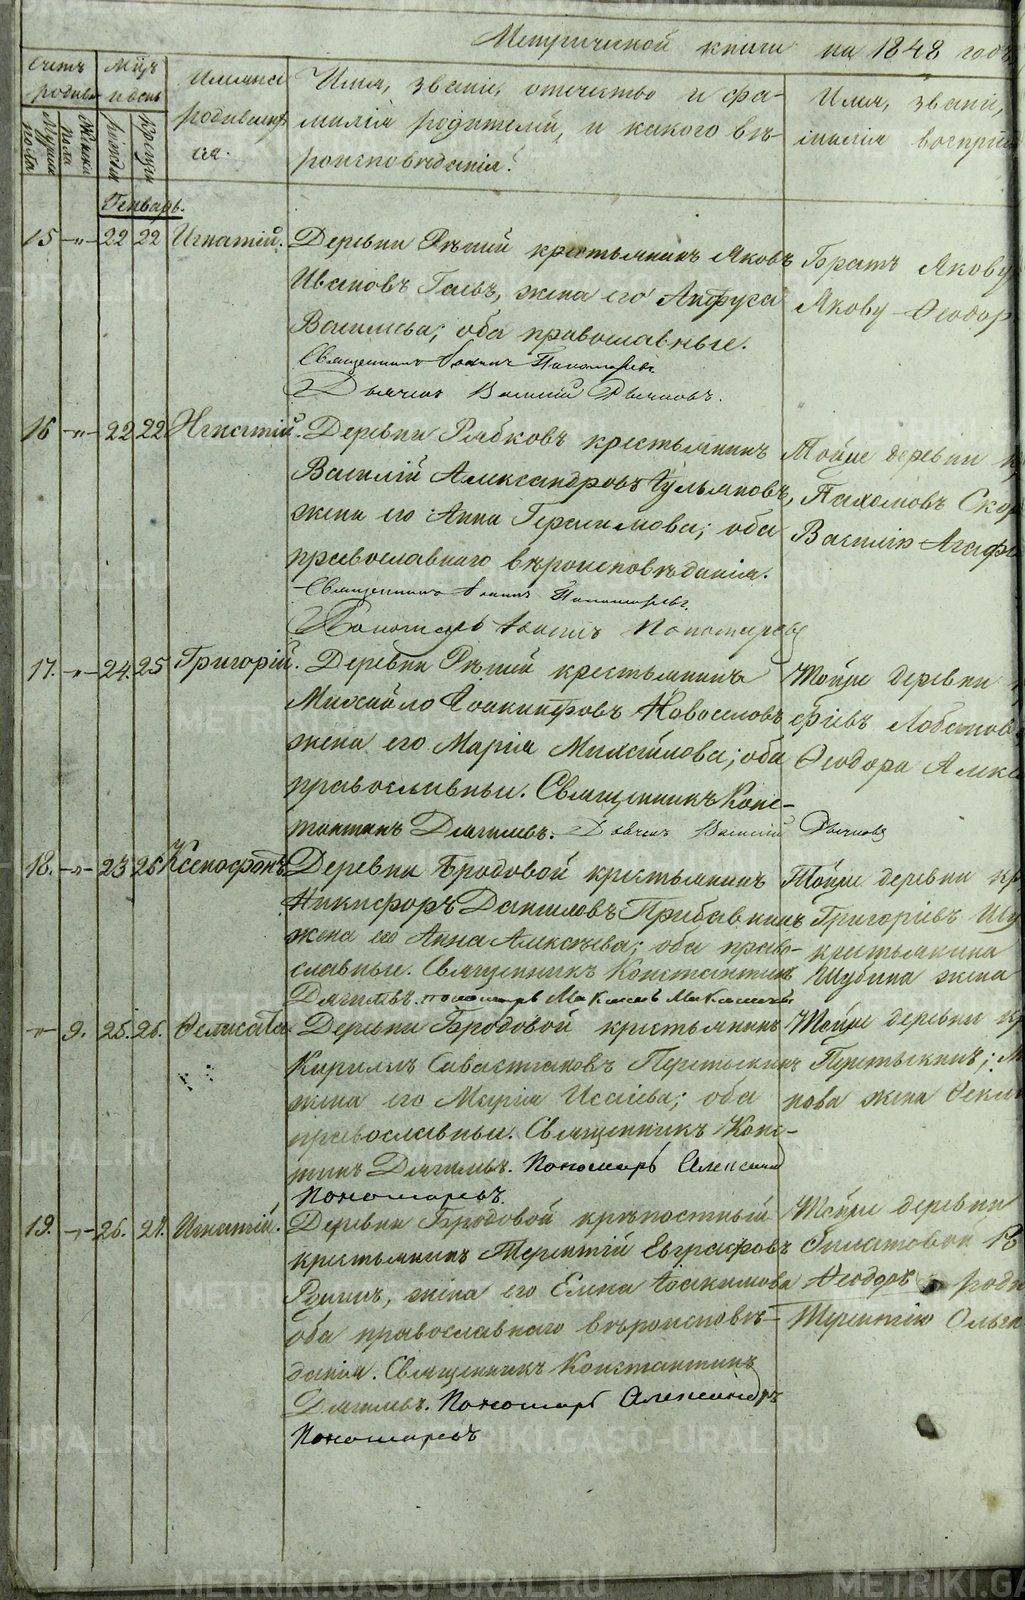 Метрической книги на 1848 годъ
Счетъ родивш.
Мѣц. и день
Имяна родившихся.
Имя, званіе, отечество и фамилія родителей, и какого вѣроисповѣданія.
Имя, званіе,
милія воспріем
Мужеска пола
Женска
рожденія
крещенія
Генварь.
15 -"- 22 22 Игнатій. Деревни Рѣшій крестьянинъ Яковъ
Ивановъ Гаевъ, жена его Анфуса
Васильева; оба православные.
Священникъ Іоаннъ Пономаревъ
Дьячекъ Василій Дьячковъ.
Братъ Якову
Якову Ѳеодор
16 -"- 22 22 Игнатій. Деревни Рябковъ крестьянинъ
Василій Александровъ Гульяновъ,
жена его Анна Герасимова; оба
православнаго вѣроисповѣданія.
Священникъ Іоаннъ Пономаревъ.
Пономарь Іоаннъ Пономаревъ
Тойже деревни кр
Пахомовъ Ско
Василію Агаф
17. -"- 24. 25 Григорій. Деревни Рѣшій крестьянинъ
Михайло Іоакинфовъ Новоселовъ
жена его Марія Михайлова; оба
православные. Священникъ Конс-
тантинъ Дягилевъ. Дьячекъ Василій Дьячковъ
Тойже деревни
фіевъ Лобанов
Ѳеодора Алекс
18. -"- 23 25 Ксенофонтъ Деревни Бродовой крестьянинъ
Никифоръ Даниловъ Прибавкинъ
жена его Анна Алексѣева; оба право-
славные. Священникъ Константинъ
Дягилевъ. пономарь
Тойже деревни кр
Григоріевъ Шу
крестьянина
Шубина жена
-"- 9. 25. 26. Ѳелисата Деревни Бродовой крестьянинъ
Кириллъ Савастіановъ Перетыкинъ
жена его Марія Исаіева; оба
православные. Священникъ Конс-
тинъ Дягилевъ. Пономарь Александ
Пономаревъ.
Тойже деревни кр
Перетыкинъ; М
нова жена Ѳекл
19. -"- 26. 27. Игнатій. Деревни Бродовой крѣпостный
крестьянинъ Терентій Евграфовъ
жена его Елена Іоакимова
оба православнаго вѣроисповѣ-
данія. Священникъ Константинъ
Дягилевъ. Пономарь Александръ
Пономаревъ
Тойже деревни
Ѳеодоръ родн
Терентію Ольга
METRIKI.GASO-URAL.RU